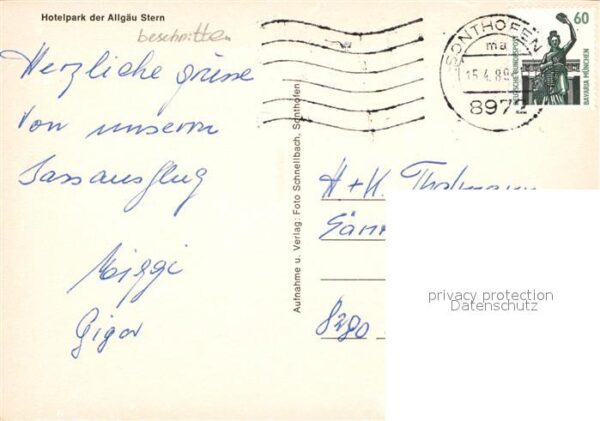 Hotelpark der Allgäu Stern
beschnitten
Herzliche grüsse
von unserm
Jassausflug
Gigor
Aufnahme u. Verlag: Foto Schnellbach, Sonthofen
SONTHOFEN
ma
15.4.89
8972
60
DEUTSCHE BUNDESPOST
BAVARIA MÜNCHEN
H + H.
8280
privacy protection
Datenschutz